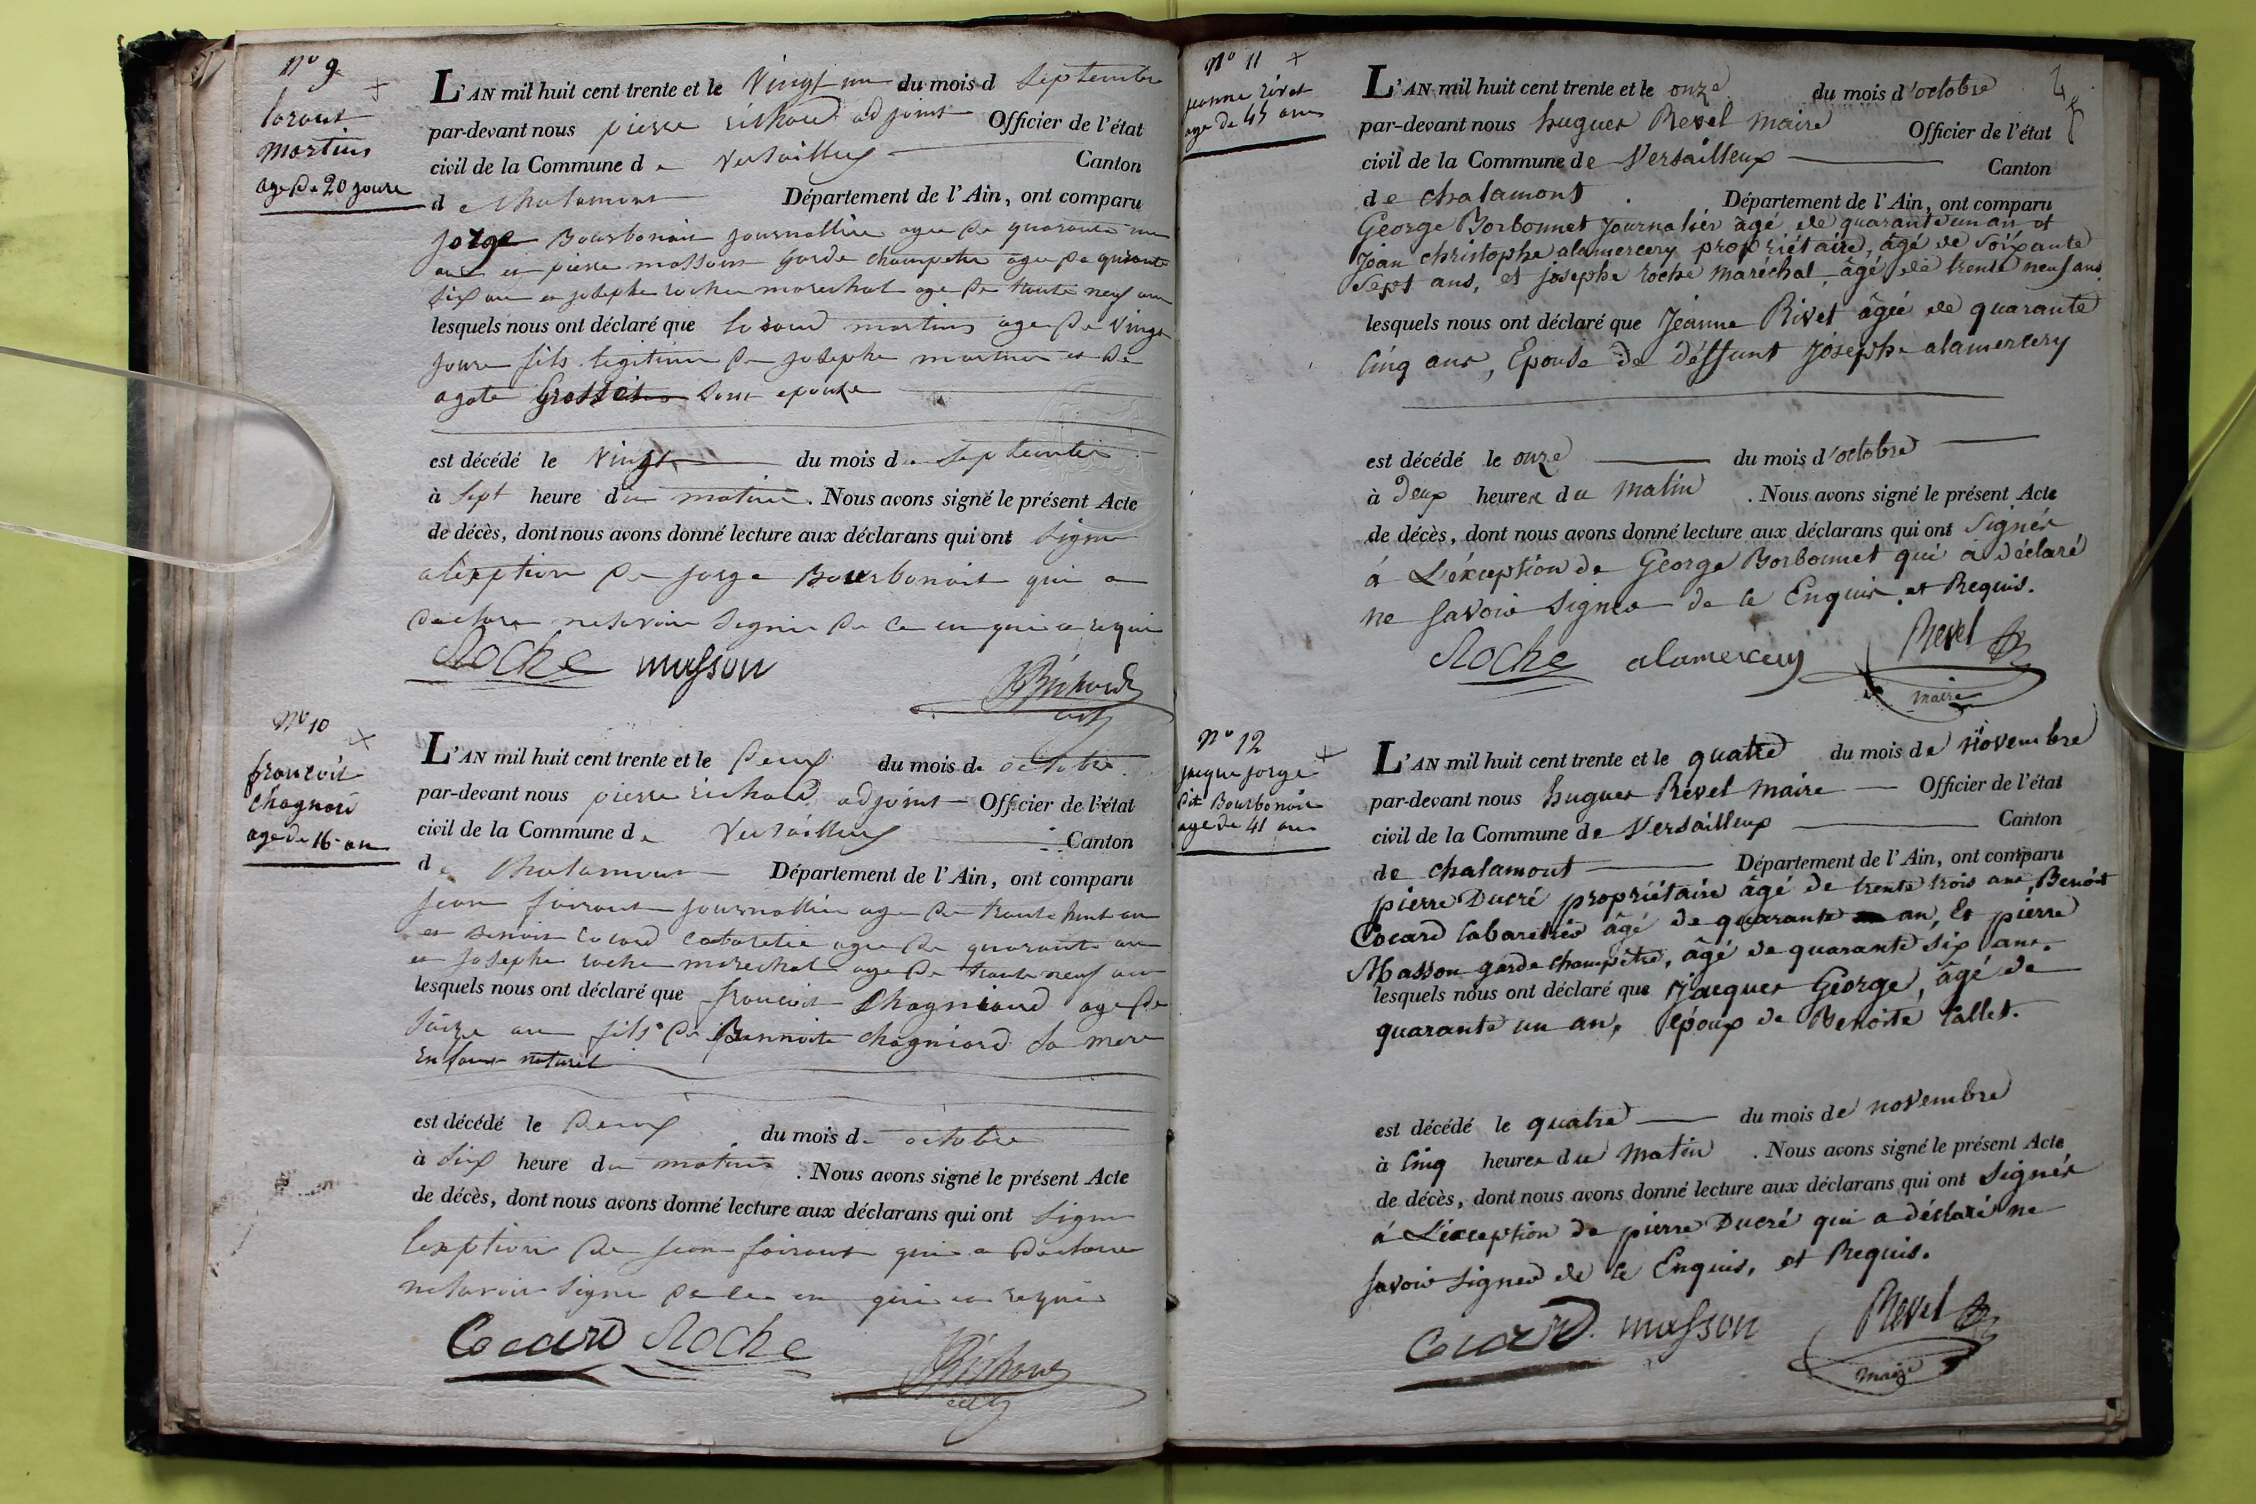 N° 9
lorant
martin
age de 20 jours
L'AN mil huit cent trente et le Vingt un du mois d septembre
par-devant nous pierre richard adjoint Officier de l'état
civil de la Commune de Versailleux Canton
de chalamont Département de l'Ain, ont comparu
jorge Bourbonoit journallier age de quarante un
ans et pierre masson Garde champetre age de quarante
six an et josephe roche marechal age de trante neuf an
lesquels nous ont déclaré que lorand martin age de vingt
jours fils legitime de josephe martin et de
agate Grosset son epouse
est décédé le Vingt du mois de septembre
à sept heure du matin. Nous avons signé le présent Acte
de décès, dont nous avons donné lecture aux déclarans qui ont signe
a lexption de jorge Bourbonoit qui a
declare ne savoir signer de ce enquis et requis
Roche masson
Richard
adj
N° 10
francoit
chagnard
age de 16 an
L'AN mil huit cent trente et le deux du mois de octobre
par-devant nous pierre richard adjoint Officier de l'état
civil de la Commune de Versailleux Canton
de chalamont Département de l'Ain, ont comparu
jean journallier age de trante huit an
et benoit cocard cabaretie age de quarante an
et josephe roche marechal age de trante neuf an
lesquels nous ont déclaré que francoit chagniard age de
saize an fils de Bennoite chagniard sa mere
enfant naturel
est décédé le deux du mois de octobre
à six heure du matin. Nous avons signé le présent Acte
de décès, dont nous avons donné lecture aux déclarans qui ont signe
lexption de jean qui a declare
ne savoir signe de ce en quis et requis
Cocard Roche
Richard
adj
N° 11
jeanne rivet
age de 45 ans
L'AN mil huit cent trente et le onze du mois d'octobre
par-devant nous hugues Revel Maire Officier de l'état
civil de la Commune de Versailleux Canton
de chalamont Département de l'Ain, ont comparu
George Borbonnet journalier âgé de quarante un an et
jean christophe alamercery propriétaire, âgé de soixante
sept ans, et josephe roche maréchal, âgé de trente neuf ans
lesquels nous ont déclaré que Jéanne Rivet âgée de quarante
cinq ans, Epouse de déffunt Josephe alamercery
est décédé le onze du mois d'octobre
à deux heures du Matin. Nous avons signé le présent Acte
de décès, dont nous avons donné lecture aux déclarans qui ont signés
à L'éxception de George Borbonnet qui a déclaré
ne savoir signer de ce Enquis et Requis.
Roche alamercery Revel
maire
N° 12
jacque jorge
dit Bourbonoit
age de 41 ans
L'AN mil huit cent trente et le quatre du mois de Novembre
par-devant nous hugues Revel Maire Officier de l'état
civil de la Commune de Versailleux Canton
de chalamont Département de l'Ain, ont comparu
pierre Ducré propriétaire âgé de trente trois ans, Benoit
Cocard Cabaretier âgé de quarante an, Et pierre
Masson garde champêtre, âgé de quarante six ans.
lesquels nous ont déclaré que Jacques George, âgé de
quarante un an, époux de Benoite Callet.
est décédé le quatre du mois de novembre
à cinq heures du Matin. Nous avons signé le présent Acte
de décès, dont nous avons donné lecture aux déclarans qui ont signés
à L'éxception de pierre Ducré qui a déclaré ne
savoir signer de ce Enquis, et Requis.
Cocard masson Revel
Maire